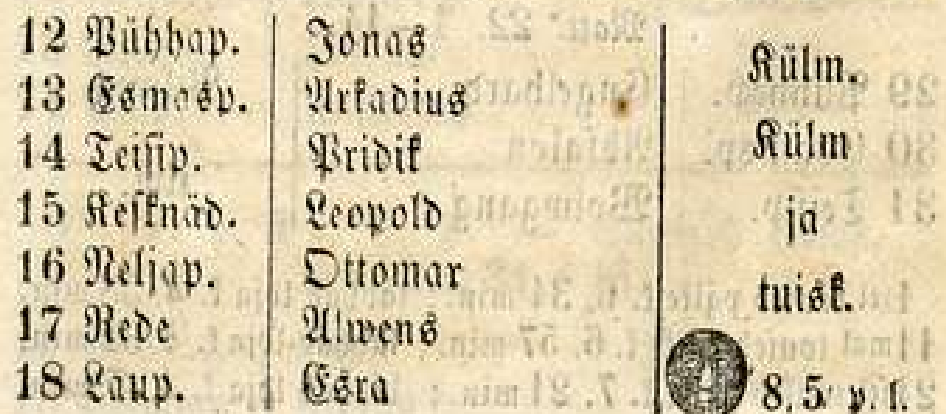 12 Pühhap. Jonas Külm.
13 Esmasp. Arkadius
14 Teisip. Pridik Külm
15 Kesknäd. Leopold ja
16 Neljap. Ottomar tuisk.
17 Rede Alwens
18 Laup. Esra 8, 5 p. l.